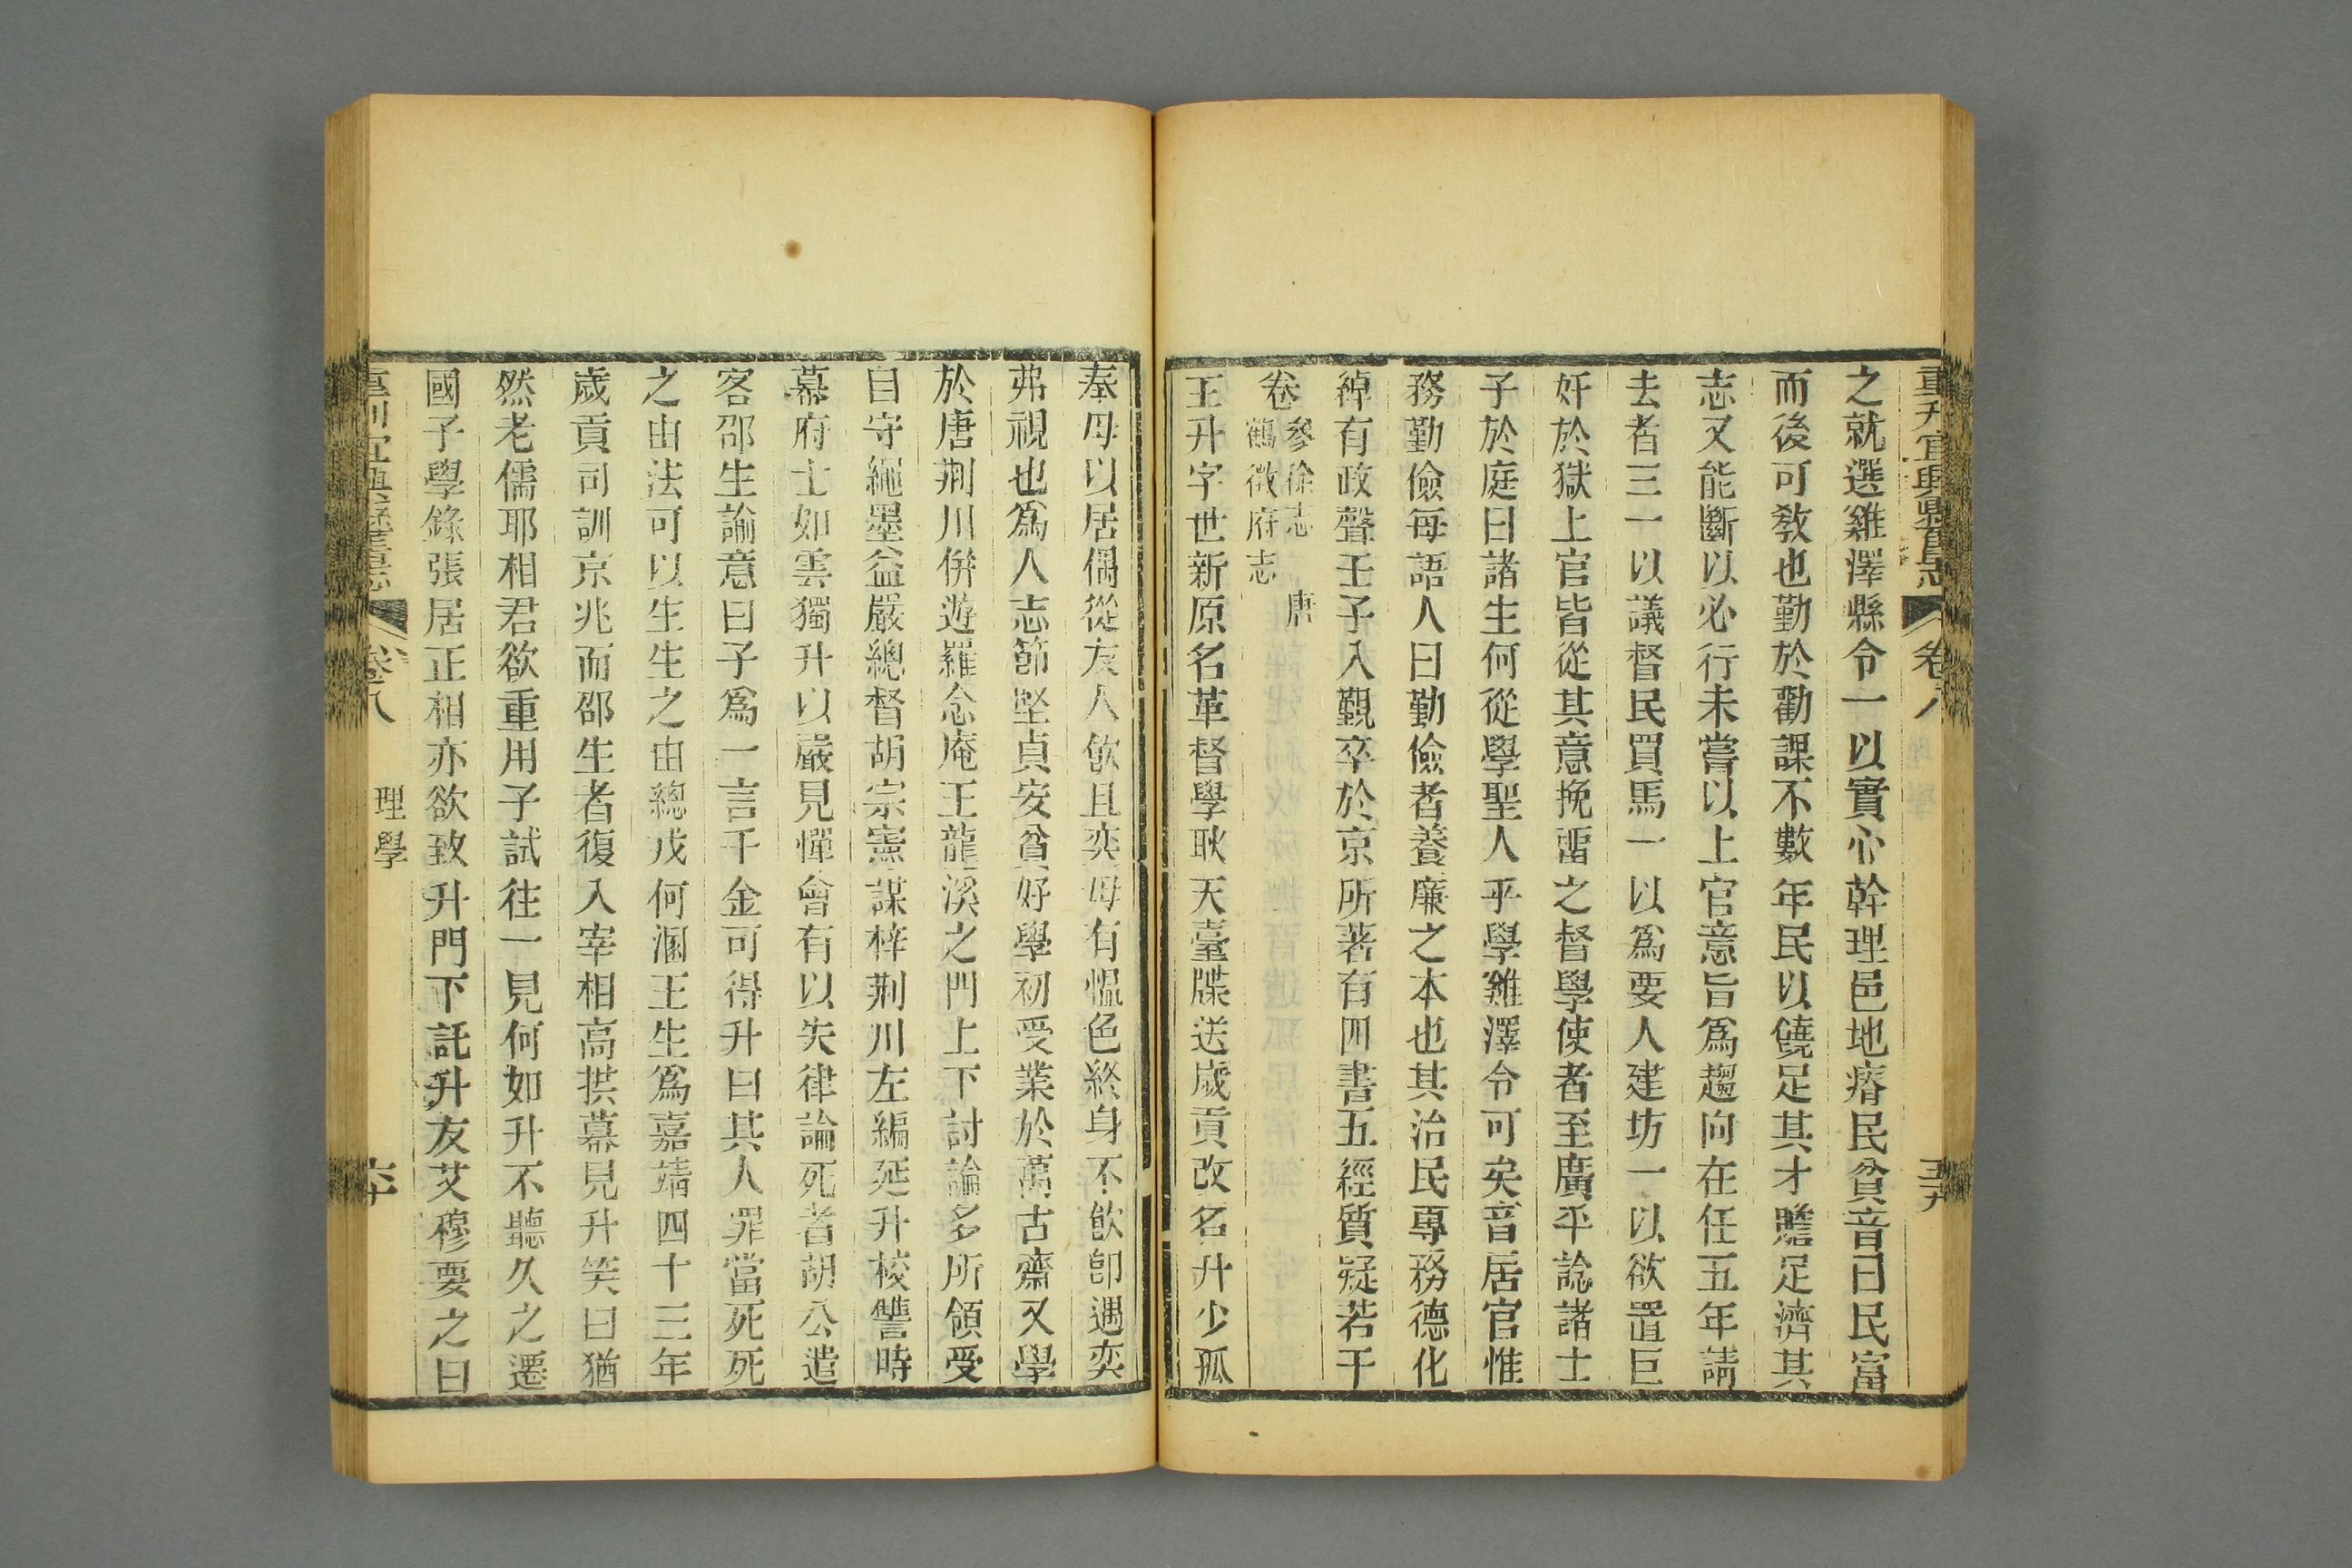 重刊宜興縣舊志 卷八 五十九
之就選雞澤縣令一以實心幹理邑地瘠民貧音曰民富
而後可敎也勤於勸課不數年民以饒足其才贍足濟其
志又能斷以必行未嘗以上官意旨爲趨向在任五年請
去者三一以議督民買馬一以爲要人建坊一以欲置巨
奸於獄上官皆從其意挽畱之督學使者至廣平諗諸士
子於庭曰諸生何從學聖人乎學雞澤令可矣音居官惟
務勤儉每語人曰勤儉者養廉之本也其治民專務德化
綽有政聲壬子入覲卒於京所著有四書五經質疑若干
卷參徐志 唐
鶴徵府志
王升字世新原名革督學耿天臺牒送歲貢改名升少孤
奉母以居偶從友人飮且奕母有慍色終身不飮卽遇奕
弗視也爲人志節堅貞安貧好學初受業於萬古齋又學
於唐荆川併遊羅念庵王龍溪之門上下討論多所領受
自守繩墨益嚴總督胡宗憲謀梓荆川左編延升校讐時
幕府士如雲獨升以嚴見憚會有以失律論死者胡公遣
客邵生諭意曰子爲一言千金可得升曰其人罪當死死
之由法可以生生之由總戎何溷王生爲嘉靖四十三年
歲貢司訓京兆而邵生者復入宰相高拱幕見升笑曰猶
然老儒耶相君欲重用子試往一見何如升不聽久之遷
國子學錄張居正相亦欲致升門下託升友艾穆要之曰
重刊宜興縣舊志 卷八 理學 六十